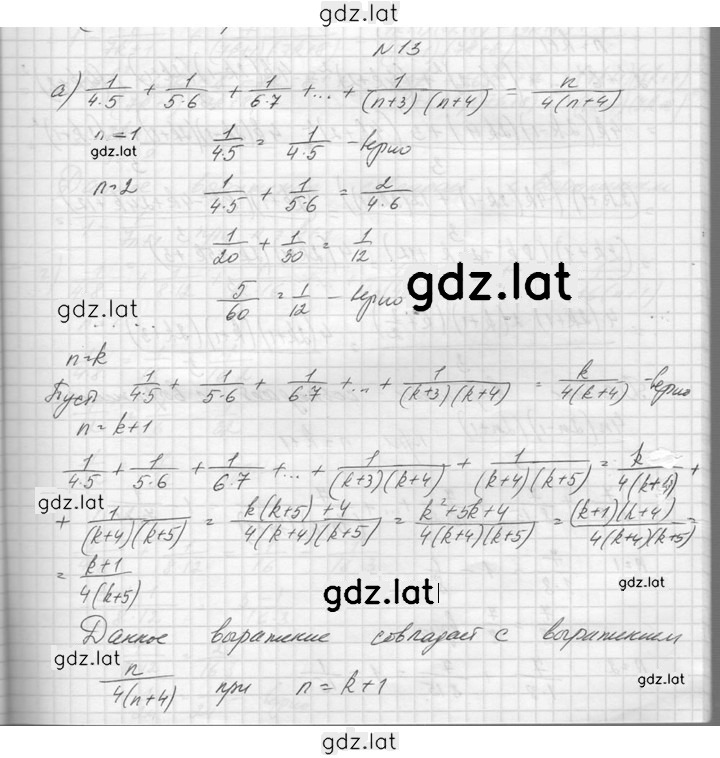 gdz.lat
N 13
а) 1/(4·5) + 1/(5·6) + 1/(6·7) + ... + 1/((n+3)(n+4)) = n/(4(n+4))
n=1 1/(4·5) = 1/(4·5) - верно
gdz.lat
n=2 1/(4·5) + 1/(5·6) = 2/(4·6)
1/20 + 1/30 = 1/12
gdz.lat
5/60 = 1/12 - верно
gdz.lat
n=k
Пусть 1/(4·5) + 1/(5·6) + 1/(6·7) + ... + 1/((k+3)(k+4)) = k/(4(k+4)) - верно
n=k+1
1/(4·5) + 1/(5·6) + 1/(6·7) + ... + 1/((k+3)(k+4)) + 1/((k+4)(k+5)) = k/(4(k+4)) +
gdz.lat
+ 1/((k+4)(k+5)) = (k(k+5)+4)/(4(k+4)(k+5)) = (k²+5k+4)/(4(k+4)(k+5)) = ((k+1)(k+4))/(4(k+4)(k+5)) =
= (k+1)/(4(k+5))
gdz.lat
gdz.lat
Данное выражение совпадает с выражением
gdz.lat
n/(4(n+4)) при n = k+1
gdz.lat
gdz.lat